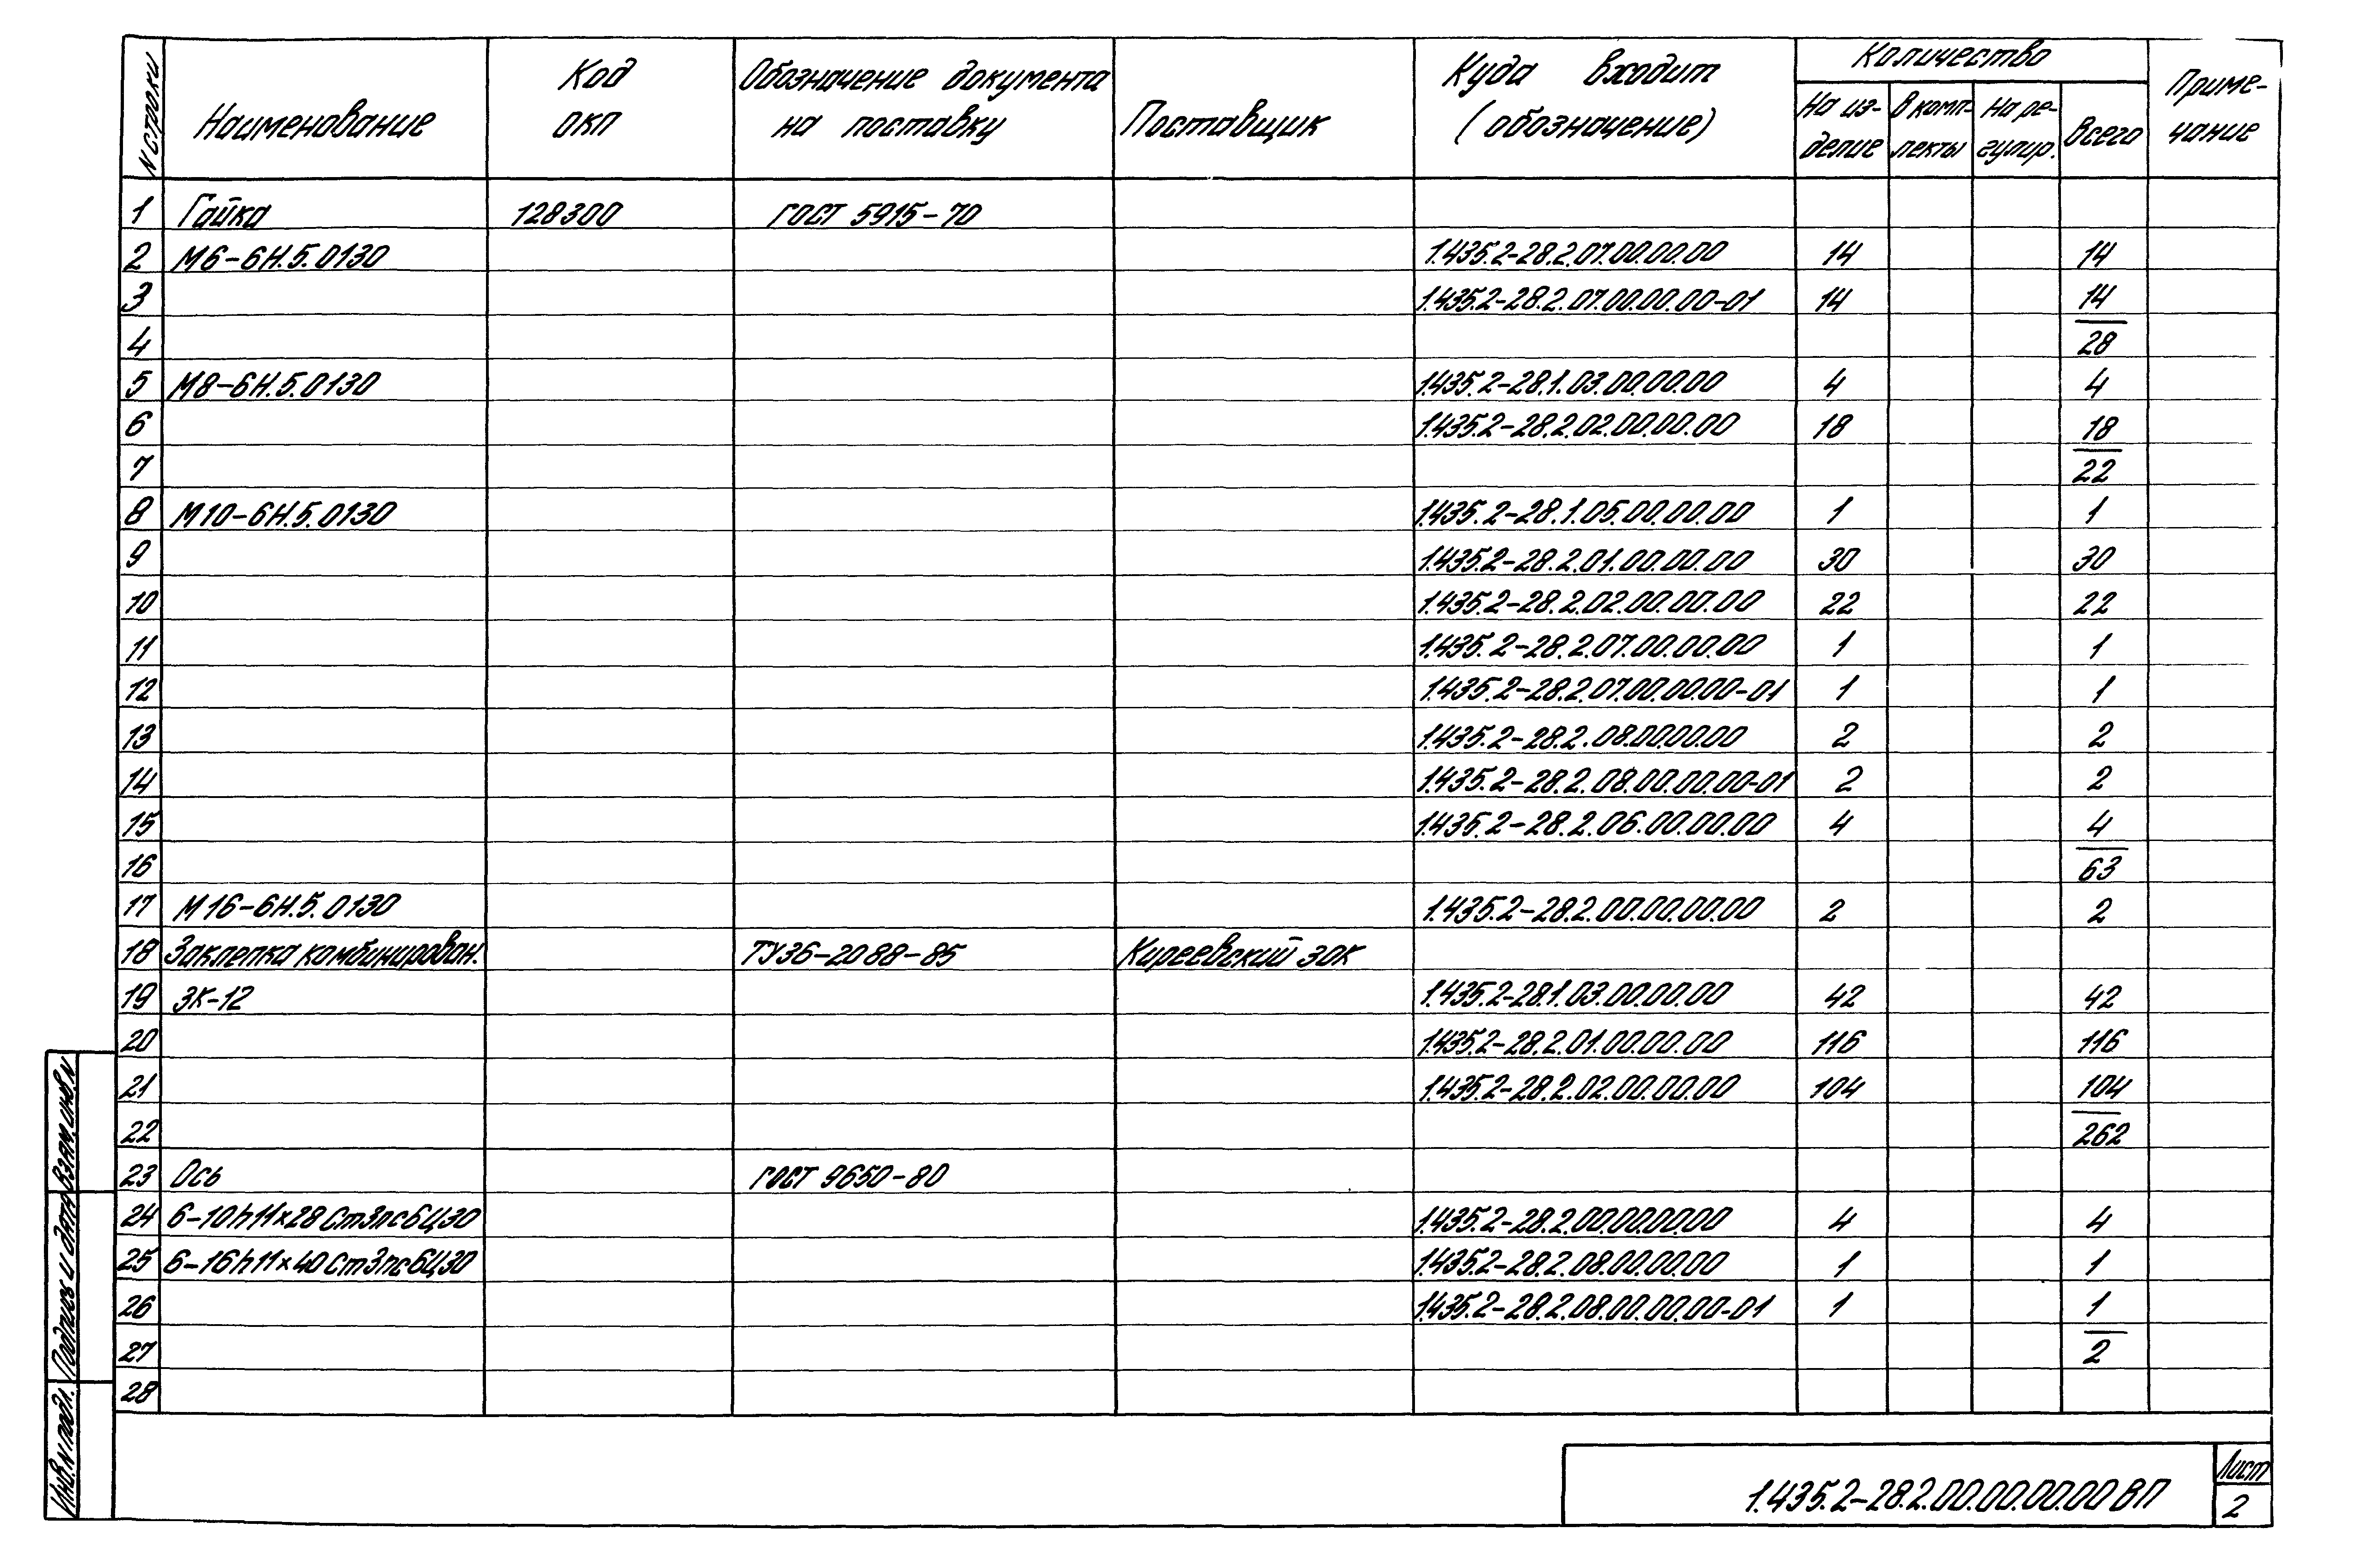 N строки Наименование Код ОКП Обозначение документа на поставку Поставщик Куда входит (обозначение) Количество На изделие В комплекты На регулир. Всего Примечание
1 Гайка 128300 ГОСТ 5915-70
2 М6-6Н.5.0130 1.435.2-28.2.07.00.00.00 14 14
3 1.435.2-28.2.07.00.00.00-01 14 14
4 28
5 М8-6Н.5.0130 1.435.2-28.1.03.00.00.00 4 4
6 1.435.2-28.2.02.00.00.00 18 18
7 22
8 М10-6Н.5.0130 1.435.2-28.1.05.00.00.00 1 1
9 1.435.2-28.2.01.00.00.00 30 30
10 1.435.2-28.2.02.00.00.00 22 22
11 1.435.2-28.2.07.00.00.00 1 1
12 1.435.2-28.2.07.00.00.00-01 1 1
13 1.435.2-28.2.08.00.00.00 2 2
14 1.435.2-28.2.08.00.00.00-01 2 2
15 1.435.2-28.2.06.00.00.00 4 4
16 63
17 М16-6Н.5.0130 1.435.2-28.2.00.00.00.00 2 2
18 Заклепка комбинирован. ТУ36-2088-85 Киреевский ЗОК
19 ЗК-12 1.435.2-28.1.03.00.00.00 42 42
20 1.435.2-28.2.01.00.00.00 116 116
21 1.435.2-28.2.02.00.00.00 104 104
22 262
23 Ось ГОСТ 9650-80
24 6-10h11×28 Ст3пс6Ц30 1.435.2-28.2.00.00.00.00 4 4
25 6-16h11×40 Ст3пс6Ц30 1.435.2-28.2.08.00.00.00 1 1
26 1.435.2-28.2.08.00.00.00-01 1 1
27 2
28
Взам.инв.N
Подпись и дата
Инв.N подл.
1.435.2-28.2.00.00.00.00 ВП
Лист
2